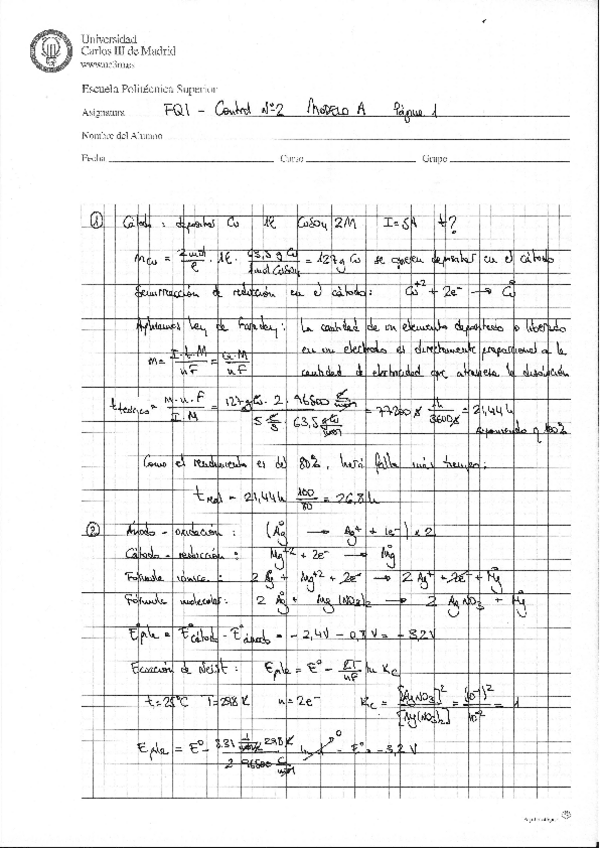 Universidad
Carlos III de Madrid
www.uc3m.es
Escuela Politécnica Superior
Asignatura FQI - Control Nº2 MODELO A Página 1
Nombre del Alumno
Fecha Curso Grupo
① Cátodo: depositar Cu 1ℓ CuSO4 2M I = 5A t?
mCu = 2 mol/ℓ · 1ℓ · 63,5 g Cu/1 mol CuSO4 = 127 g Cu se quieren depositar en el cátodo
Semirreacción de reducción en el cátodo: Cu+2 + 2e- → Cu°
Aplicamos Ley de Faraday: La cantidad de un elemento depositado o liberado
en un electrodo es directamente proporcional a la
cantidad de electricidad que atraviesa la disolución
m = I·t·M/nF = Q·M/nF
t teórico = m·n·F/I·M = 127 g Cu · 2 · 96500 C/mol / 5 C/s · 63,5 g Cu/mol = 77200 s · 1h/3600 s = 21,44 h
suponiendo η 100%
Como el rendimiento es del 80%, hará falta más tiempo:
t real = 21,44 h 100/80 = 26,8 h
② Ánodo - oxidación: (Ag° → Ag+ + 1e-) x 2
Cátodo - reducción: Mg+2 + 2e- → Mg°
Fórmula iónica: 2 Ag° + Mg+2 + 2e- → 2 Ag+ + 2e- + Mg°
Fórmula molecular: 2 Ag° + Mg(NO3)2 → 2 AgNO3 + Mg°
E°pila = E°cátodo - E°ánodo = -2,4V - 0,8V = -3,2V
Ecuación de Nernst: Epila = E° - RT/nF ln Kc
t = 25°C T = 298K n = 2e- Kc = [AgNO3]²/[Mg(NO3)2] = (10-1)²/10-2 = 1
Epila = E° - 8,31 J/mol·K 298 K / 2 · 96500 C/mol ln 1 0 = E° = -3,2V